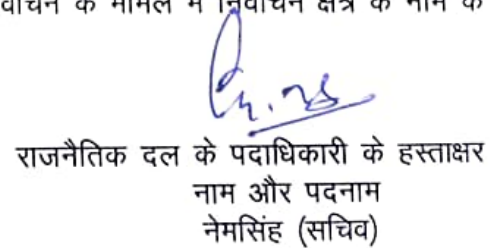 के मामले में निर्वाचन क्षेत्र के नाम के
राजनैतिक दल के पदाधिकारी के हस्ताक्षर
नाम और पदनाम
नेमसिंह (सचिव)